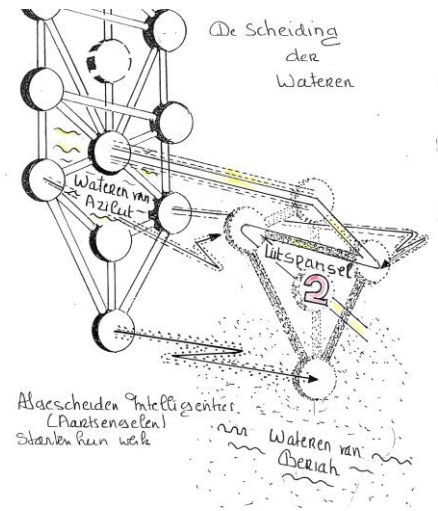 De Scheiding
der
Wateren
Wateren van
Azilut
Uitspansel
2
Afgescheiden Intelligenties
(Aartsengelen)
Starten hun werk
Wateren van
Beriah